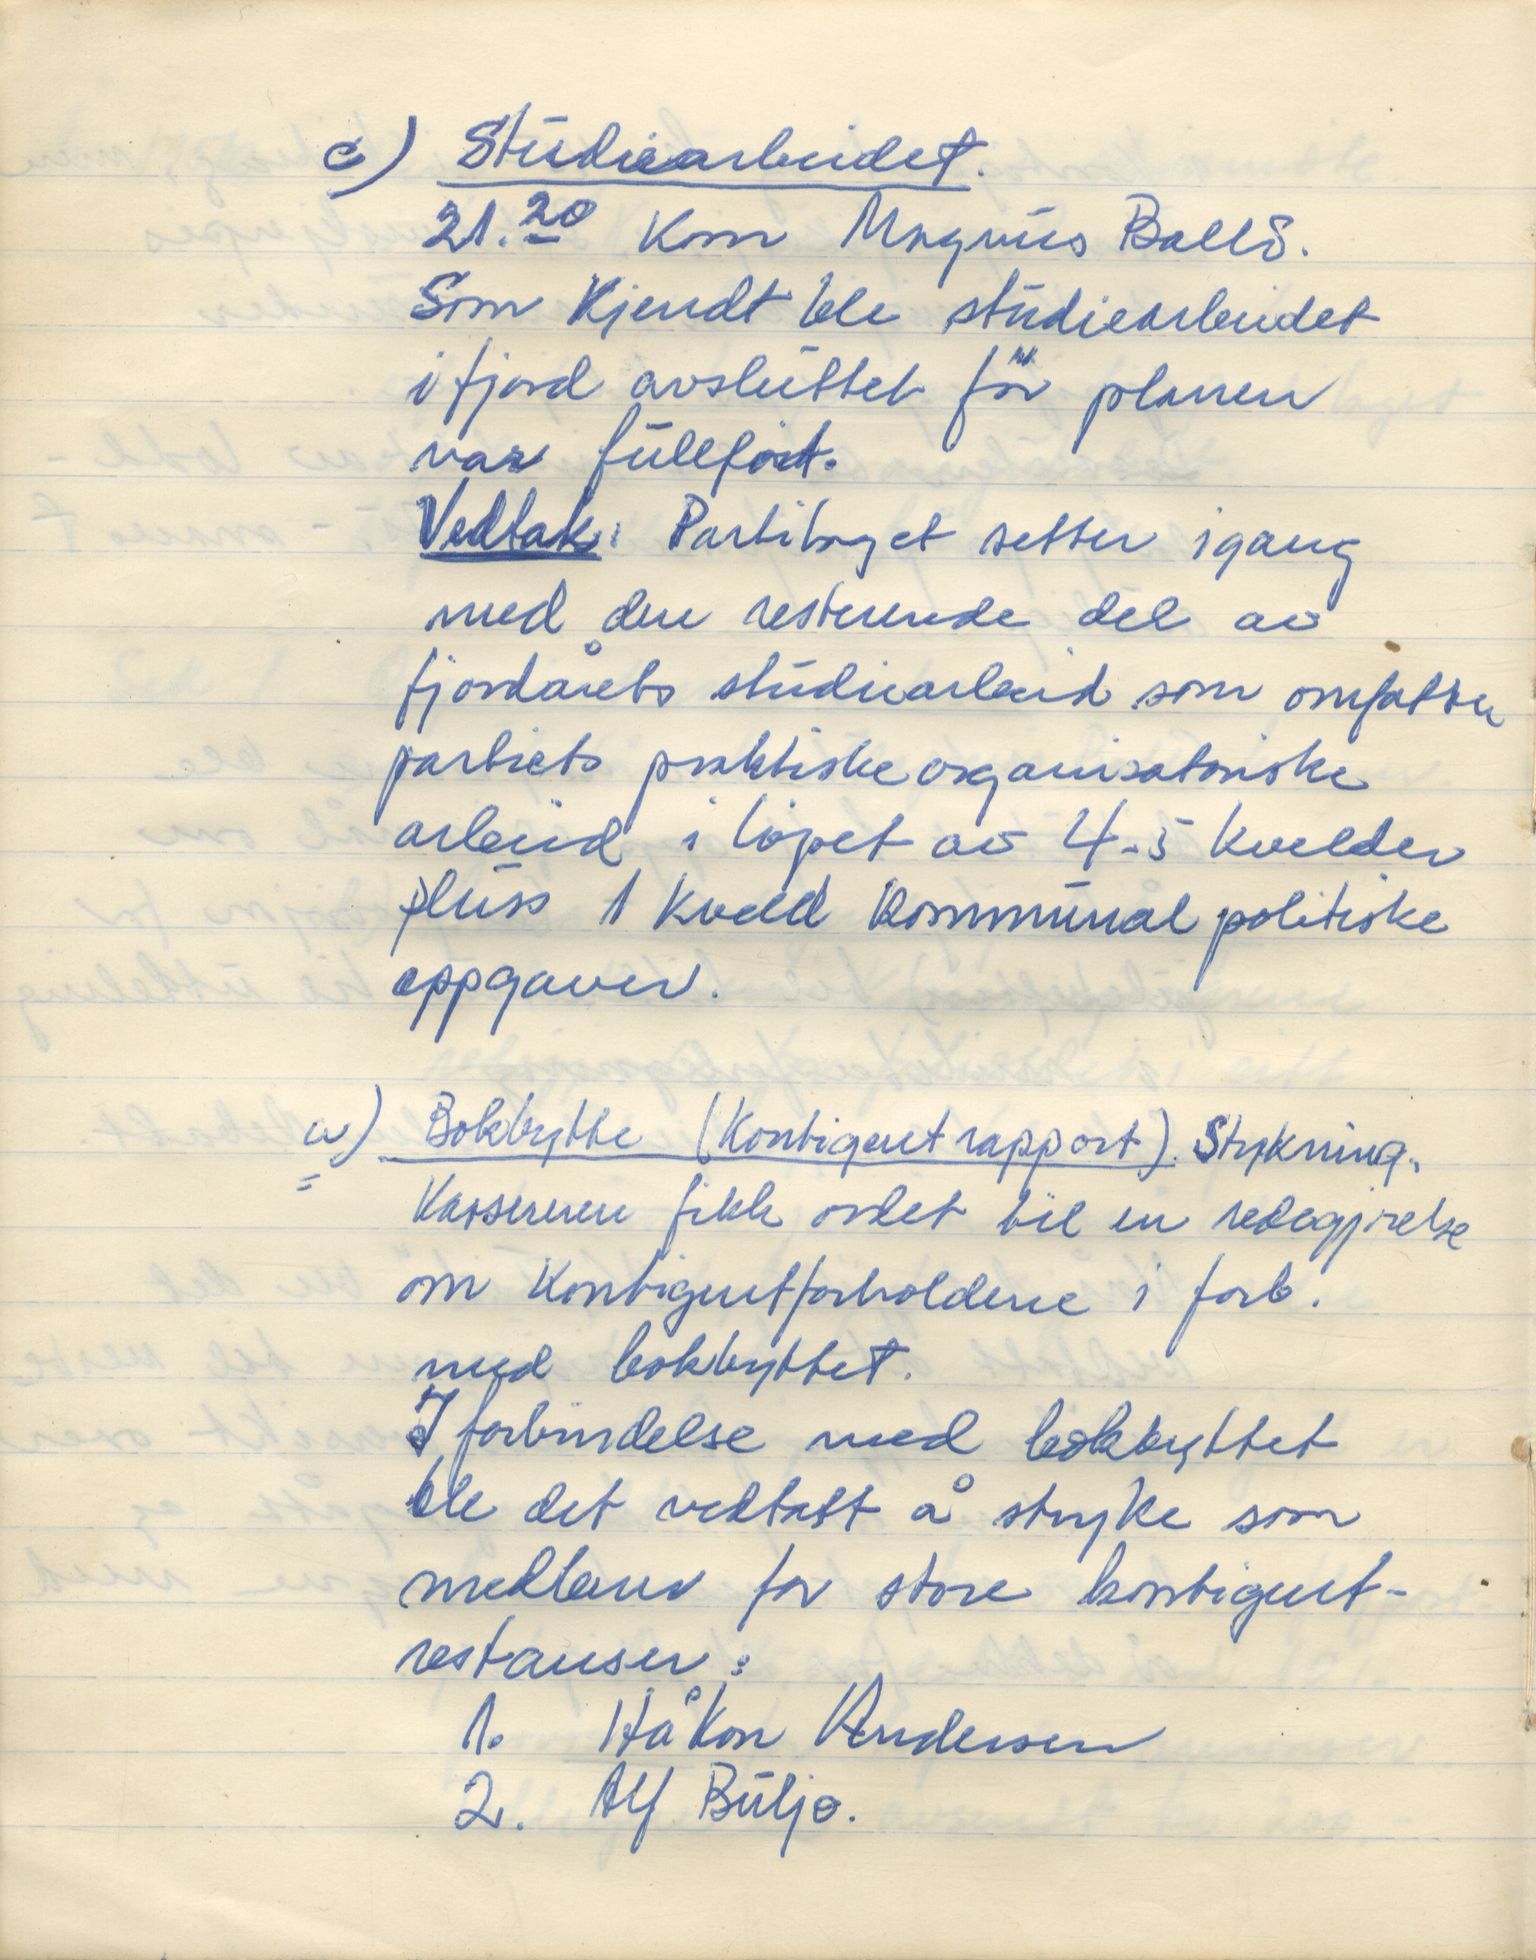 c) Studiearbeidet.
21.20 Kom Magnus Ballo.
Som Kjendt ble studiearbeidet
i fjord avsluttet før planen
var fullført.
Vedtak: Partilaget setter igang
med den resterende del av
fjordårets studiearbeid som omfatter
partiets praktiske organisatoriske
arbeid i løpet av 4-5 kvelder
pluss 1 kveld Kommunal politiske
oppgaver.
a) Bokbytte (Kontigent rapport). Strykning.
Kassereren fikk ordet til en redegjørelse
om Kontigentforholdene i forb.
med bokbyttet.
I forbindelse med bokbyttet
ble det vedtatt å stryke som
medlem for store kontigent-
restanser:
1. Håkon Andersen
2. Alf Buljo.